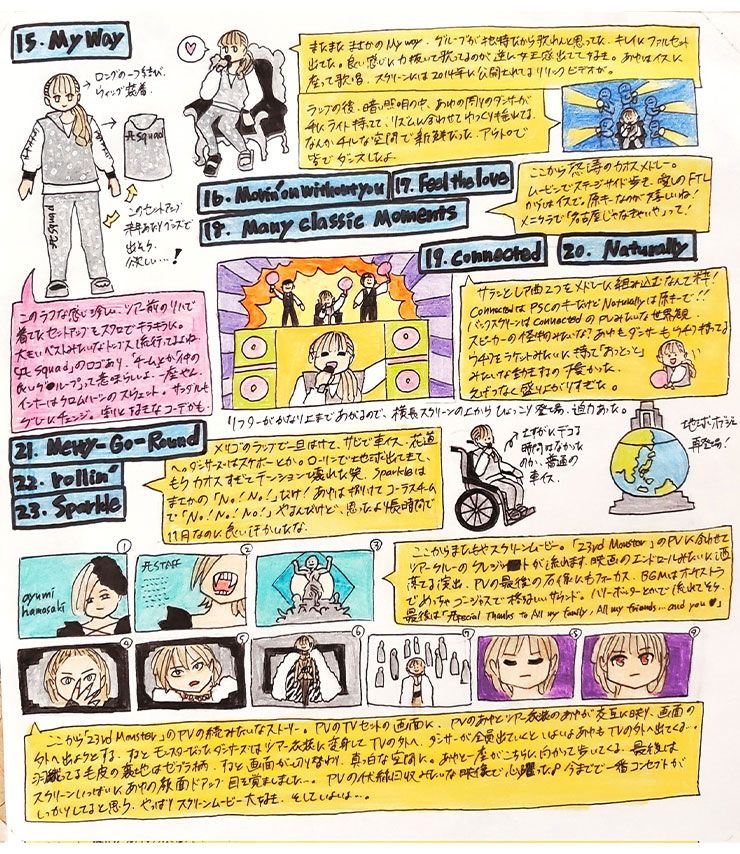 15. My Way
ロングの一つ結び、
ウィッグ装着。
A squad
このセットアップ
来年あたりグッズで
出そう。
欲しい…!
またまた まさかの My way。グループが独特だから歌わんと思ってた。キレイにファルセット
出てた。良い感じに力抜いて歌ってるのが逆に女王感出ててすき。あゆはイスに
座って歌唱。スクリーンには2014年に公開されてるリリックビデオが。
ラップの後、暗い照明の中、あゆの周りのダンサーが
手にライト持ってて、リズムに合わせてゆっくり揺れてる。
なんかチルな空間で新鮮だった。アウトロで
皆でダンスしたよ。
16. Movin' on without you
17. Feel the love
18. Many Classic Moments
ここから怒涛のカオスメドレー。
ムービンでステージサイド歩き、愛しのFTL
からはイスで。原キーなのが嬉しいね!
メニクラで「名古屋じゃなきゃいや」って!
19. Connected
20. Naturally
このラフな感じ珍しい。ツアー前のリハで
着てたセットアップをスワロでキラキラに。
大きいベストみたいなトップス流行ってるよね。
A squadのロゴあり。「チームとか仲の
良いグループ」って意味らしいよ。一座やん
インナーはクロムハーツのスウェット。サンダルも
少しいじチェンジ。割とすきなコーデかも。
サランとレア曲2つをメドレーに組み込むなんて粋!
ConnectedはPSCのキーだけどNaturallyは原キーで!!
バックスクリーンはconnectedのPVみたいな世界観
スピーカーの怪物みたいな?あゆもダンサーもうチワ持ってる
うチワをラケットみたいに持て「おっとっと」
みたいな動きするの
えげつなく盛り上がりすぎた。
リフターがかなり上まであがるので、横長スクリーンの上からひょっこり登場。迫力あった。
21. Merry-Go-Round
22. rollin'
23. Sparkle
メリゴのラップで一旦はけて、サビで車イス、花道
へ。ダンサーズはスケボーとか。ローリンで地球儀出てきて、
もうカオスすぎてテンション壊れた笑 Sparkleは
まさかの「No! No!」だけ! あゆは抜けてコーラスチーム
で「No! No! No!」やるんだけど、思ったより長時間で
11月なのに良い汗かいたな。
さすがにデコる
時間はなかった
のか、普通の
車イス。
地球オブジェ
再登場!
ここからまたもやスクリーンムービー。「23rd Monster」のPVに合わせて
ツアークルーのクレジットが流れます。映画のエンドロールみたいに洒
落てる演出。PVの最後の石像にもフォーカス。BGMはオーケストラ
でめっちゃゴージャスで格好良いサウンド。ハリーポッターとかで流れてそう。
最後は「Special Thanks to All my family, All my friends... and you♥」
1
ayumi
hamasaki
2
A STAFF
3
4
5
6
7
8
9
ここから「23rd Monster」のPVの続みたいなストーリー。PVのTVセットの画面に、PVのあゆとツアー衣装のあゆが交互に映り、画面の
外へ出ようとする。すると モンスターだったダンサーズはツアー衣装に変身してTVの外へ。ダンサーが全員出ていくと、いよいよあゆもTVの外へ出てくる…。
羽織ってる毛皮の裏地はゼブラ柄。すると画面が切り替わり、真っ白な空間に。あゆと一座がこちらに向かって歩いてくる。最後は
スクリーンいっぱいに、あゆの顔面ドアップ。目を覚ましました…。PVの伏線回収みたいな映像で心躍った♪ 今までで一番コンセプトが
しっかりしてると思う。やっぱりスクリーンムービー大好き。そしていよいよ…。